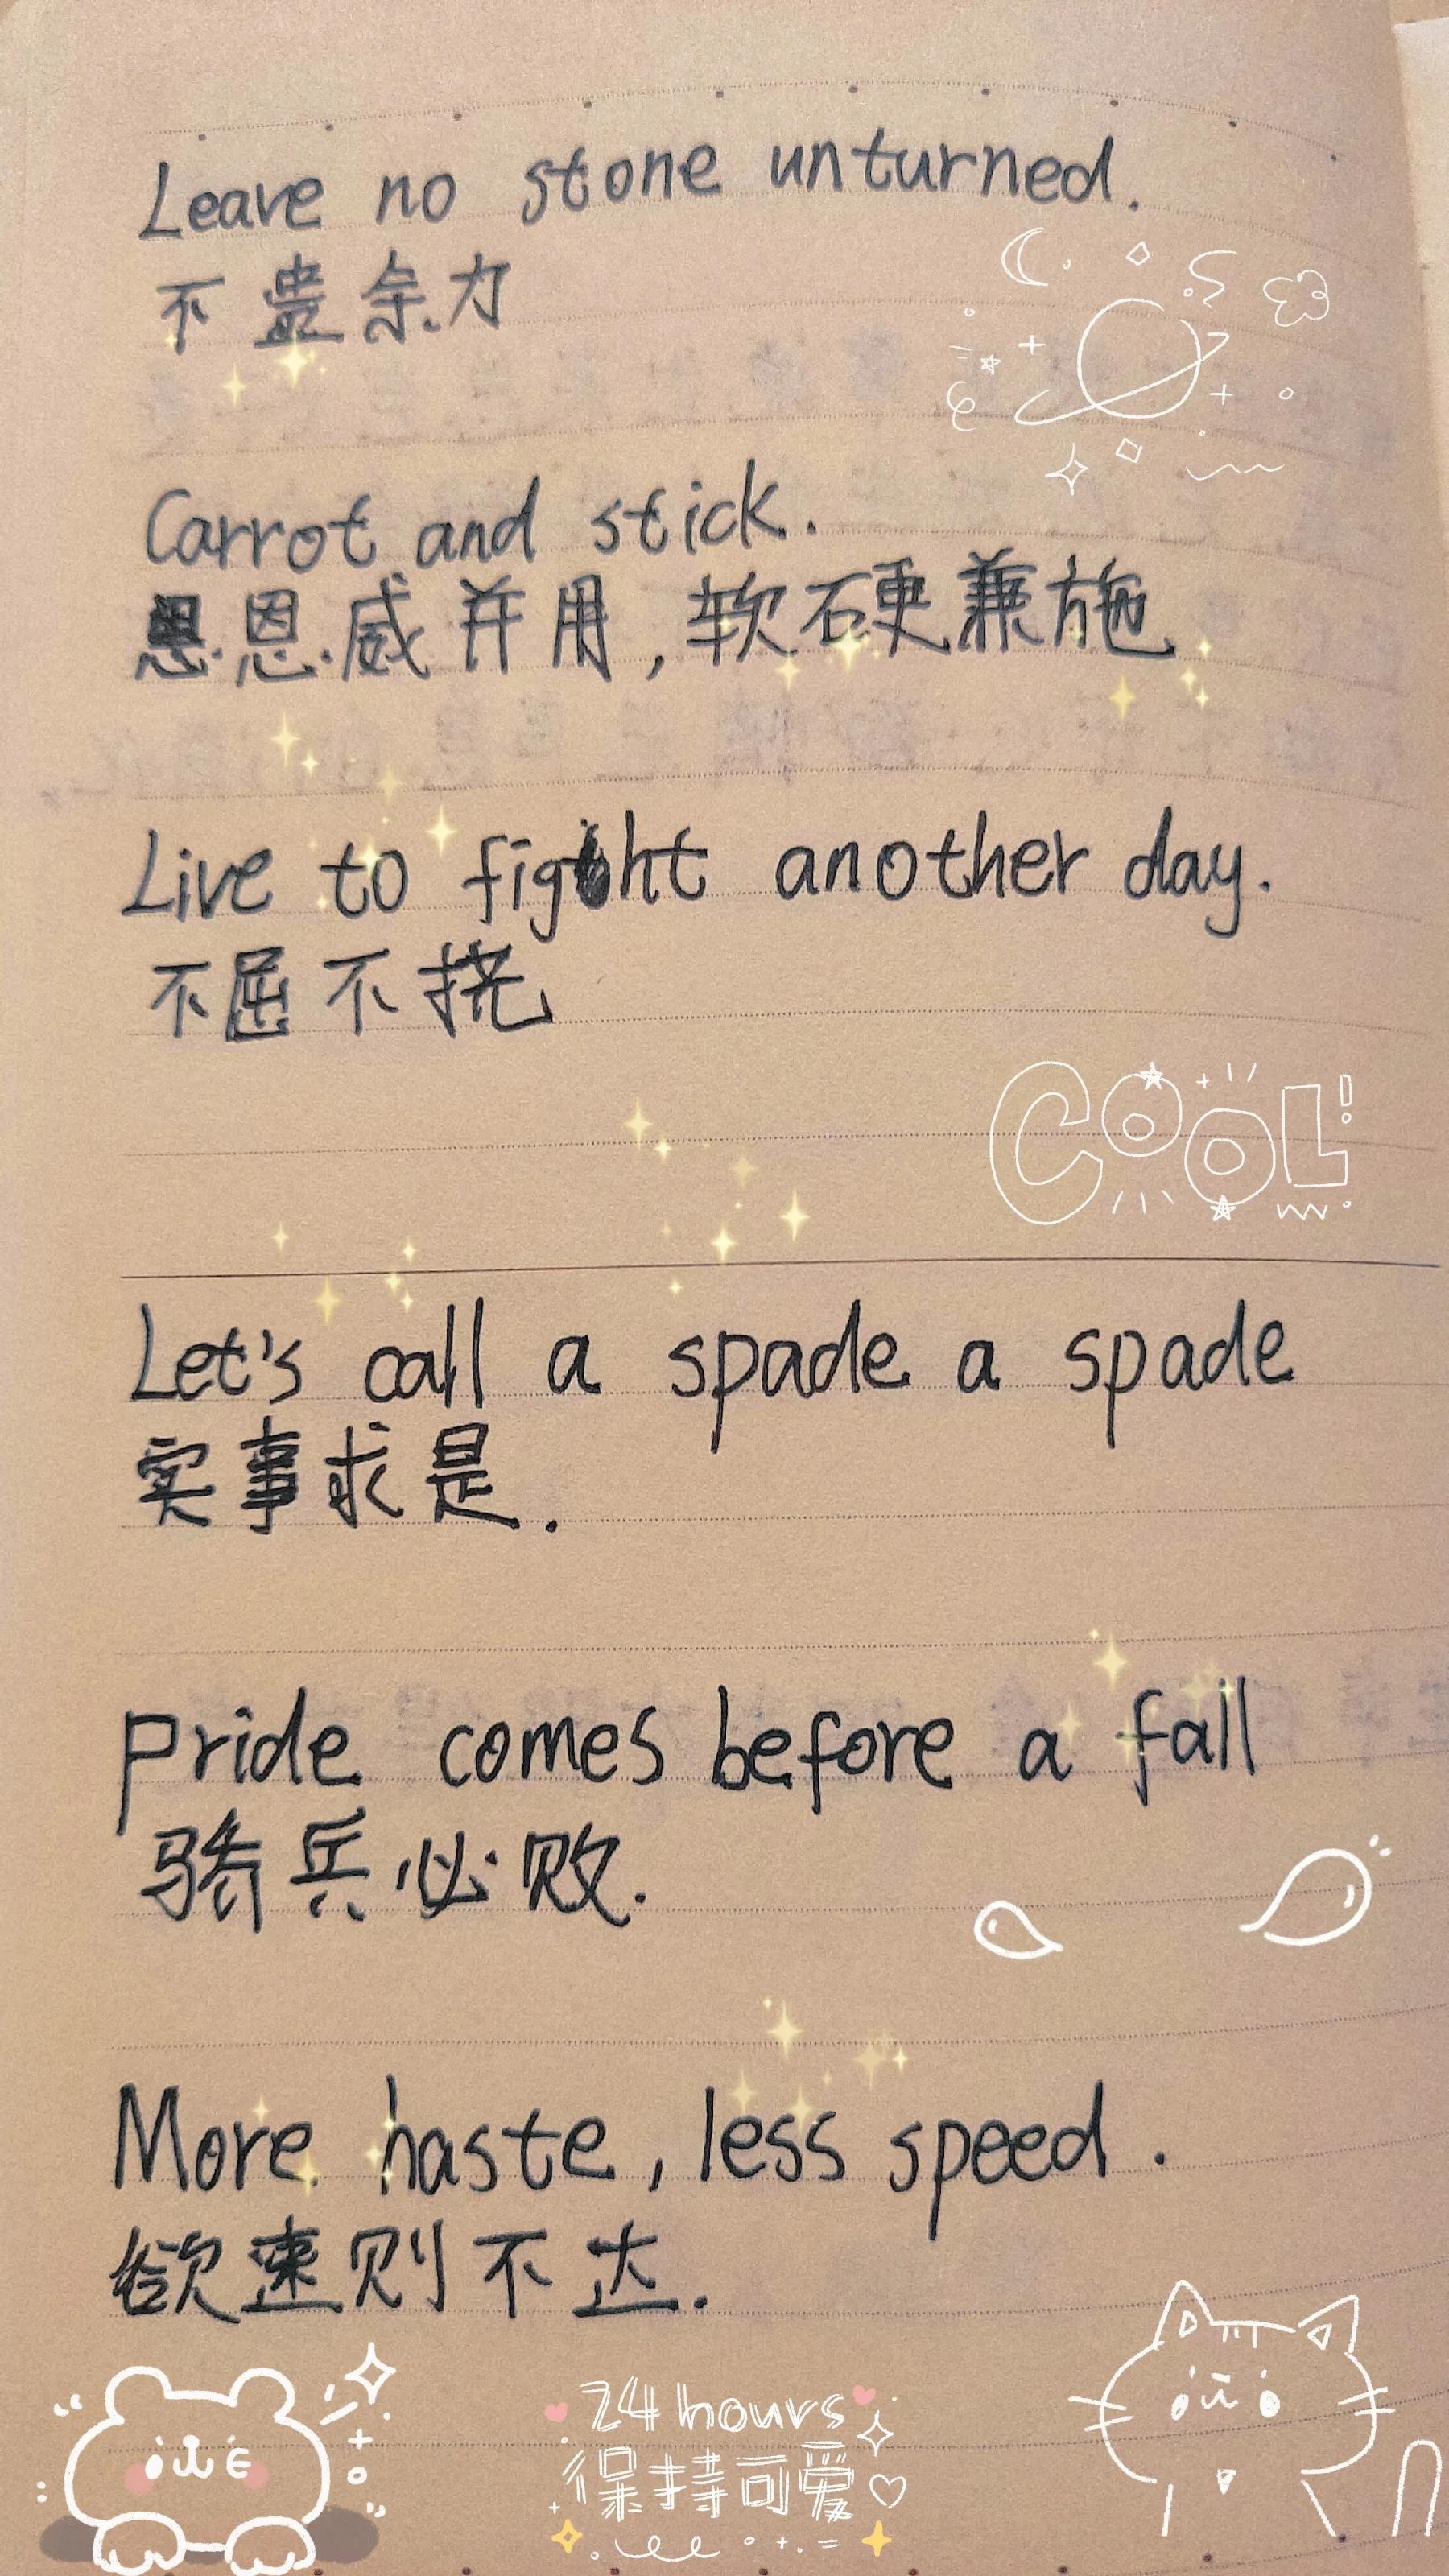 Leave no stone unturned.
不遗余力
Carrot and stick.
恩威并用,软硬兼施
Live to fight another day.
不屈不挠
COOL!
Let's call a spade a spade
实事求是.
Pride comes before a fall
骄兵必败.
More haste, less speed.
欲速则不达.
24 hours
保持可爱